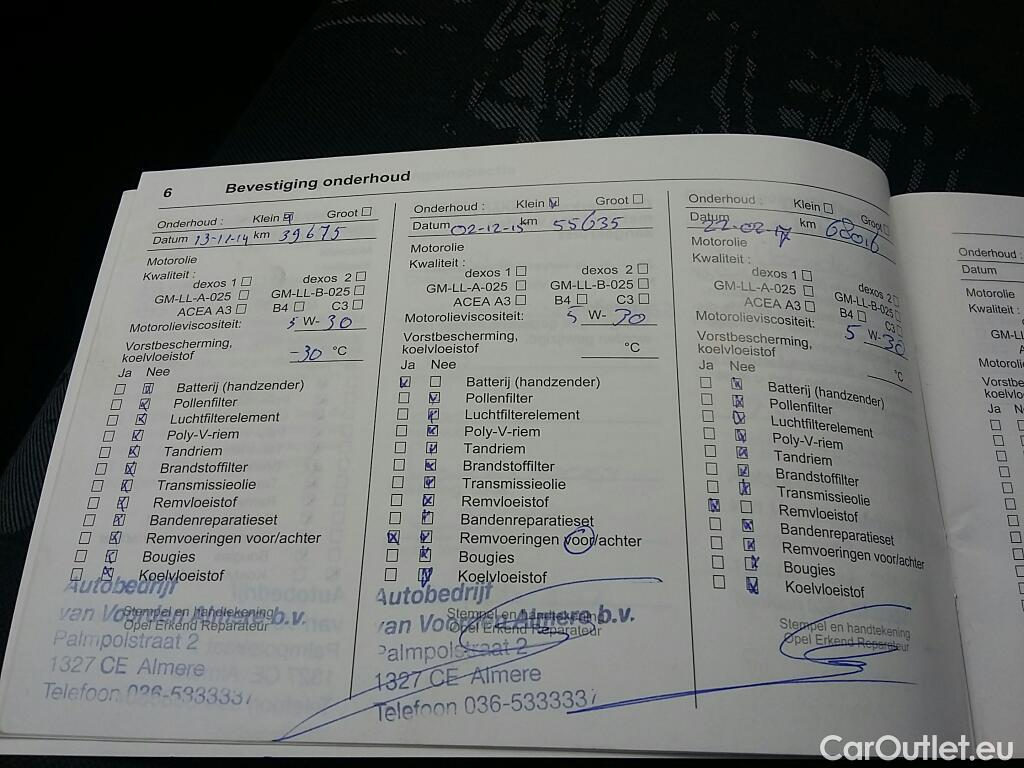 6 Bevestiging onderhoud
Onderhoud : Klein Groot
Datum 13-11-14 km 39675
Motorolie
Kwaliteit :
dexos 1 dexos 2
GM-LL-A-025 GM-LL-B-025
ACEA A3 B4 C3
Motorolieviscositeit: 5 W- 30
Vorstbescherming,
koelvloeistof -30 °C
Ja Nee
Batterij (handzender)
Pollenfilter
Luchtfilterelement
Poly-V-riem
Tandriem
Brandstoffilter
Transmissieolie
Remvloeistof
Bandenreparatieset
Remvoeringen voor/achter
Bougies
Koelvloeistof
Autobedrijf
van Voorden Almere b.v.
Stempel en handtekening
Opel Erkend Reparateur
Palmpolstraat 2
1327 CE Almere
Telefoon 036-5333337
Onderhoud : Klein Groot
Datum 02-12-15 km 55635
Motorolie
Kwaliteit :
dexos 1 dexos 2
GM-LL-A-025 GM-LL-B-025
ACEA A3 B4 C3
Motorolieviscositeit: 5 W- 30
Vorstbescherming,
koelvloeistof °C
Ja Nee
Batterij (handzender)
Pollenfilter
Luchtfilterelement
Poly-V-riem
Tandriem
Brandstoffilter
Transmissieolie
Remvloeistof
Bandenreparatieset
Remvoeringen voor/achter
Bougies
Koelvloeistof
Autobedrijf
van Voorden Almere b.v.
Stempel en handtekening
Opel Erkend Reparateur
Palmpolstraat 2
1327 CE Almere
Telefoon 036-5333337
Onderhoud : Klein Groot
Datum 22-02-17 km 68016
Motorolie
Kwaliteit :
dexos 1 dexos 2
GM-LL-A-025 GM-LL-B-025
ACEA A3 B4 C3
Motorolieviscositeit: 5 W-30
Vorstbescherming,
koelvloeistof °C
Ja Nee
Batterij (handzender)
Pollenfilter
Luchtfilterelement
Poly-V-riem
Tandriem
Brandstoffilter
Transmissieolie
Remvloeistof
Bandenreparatieset
Remvoeringen voor/achter
Bougies
Koelvloeistof
Stempel en handtekening
Opel Erkend Reparateur
Onderhoud :
Datum
Motorolie
Kwaliteit :
GM-L
Motoroli
Vorstbes
koelvloe
Ja
CarOutlet.eu